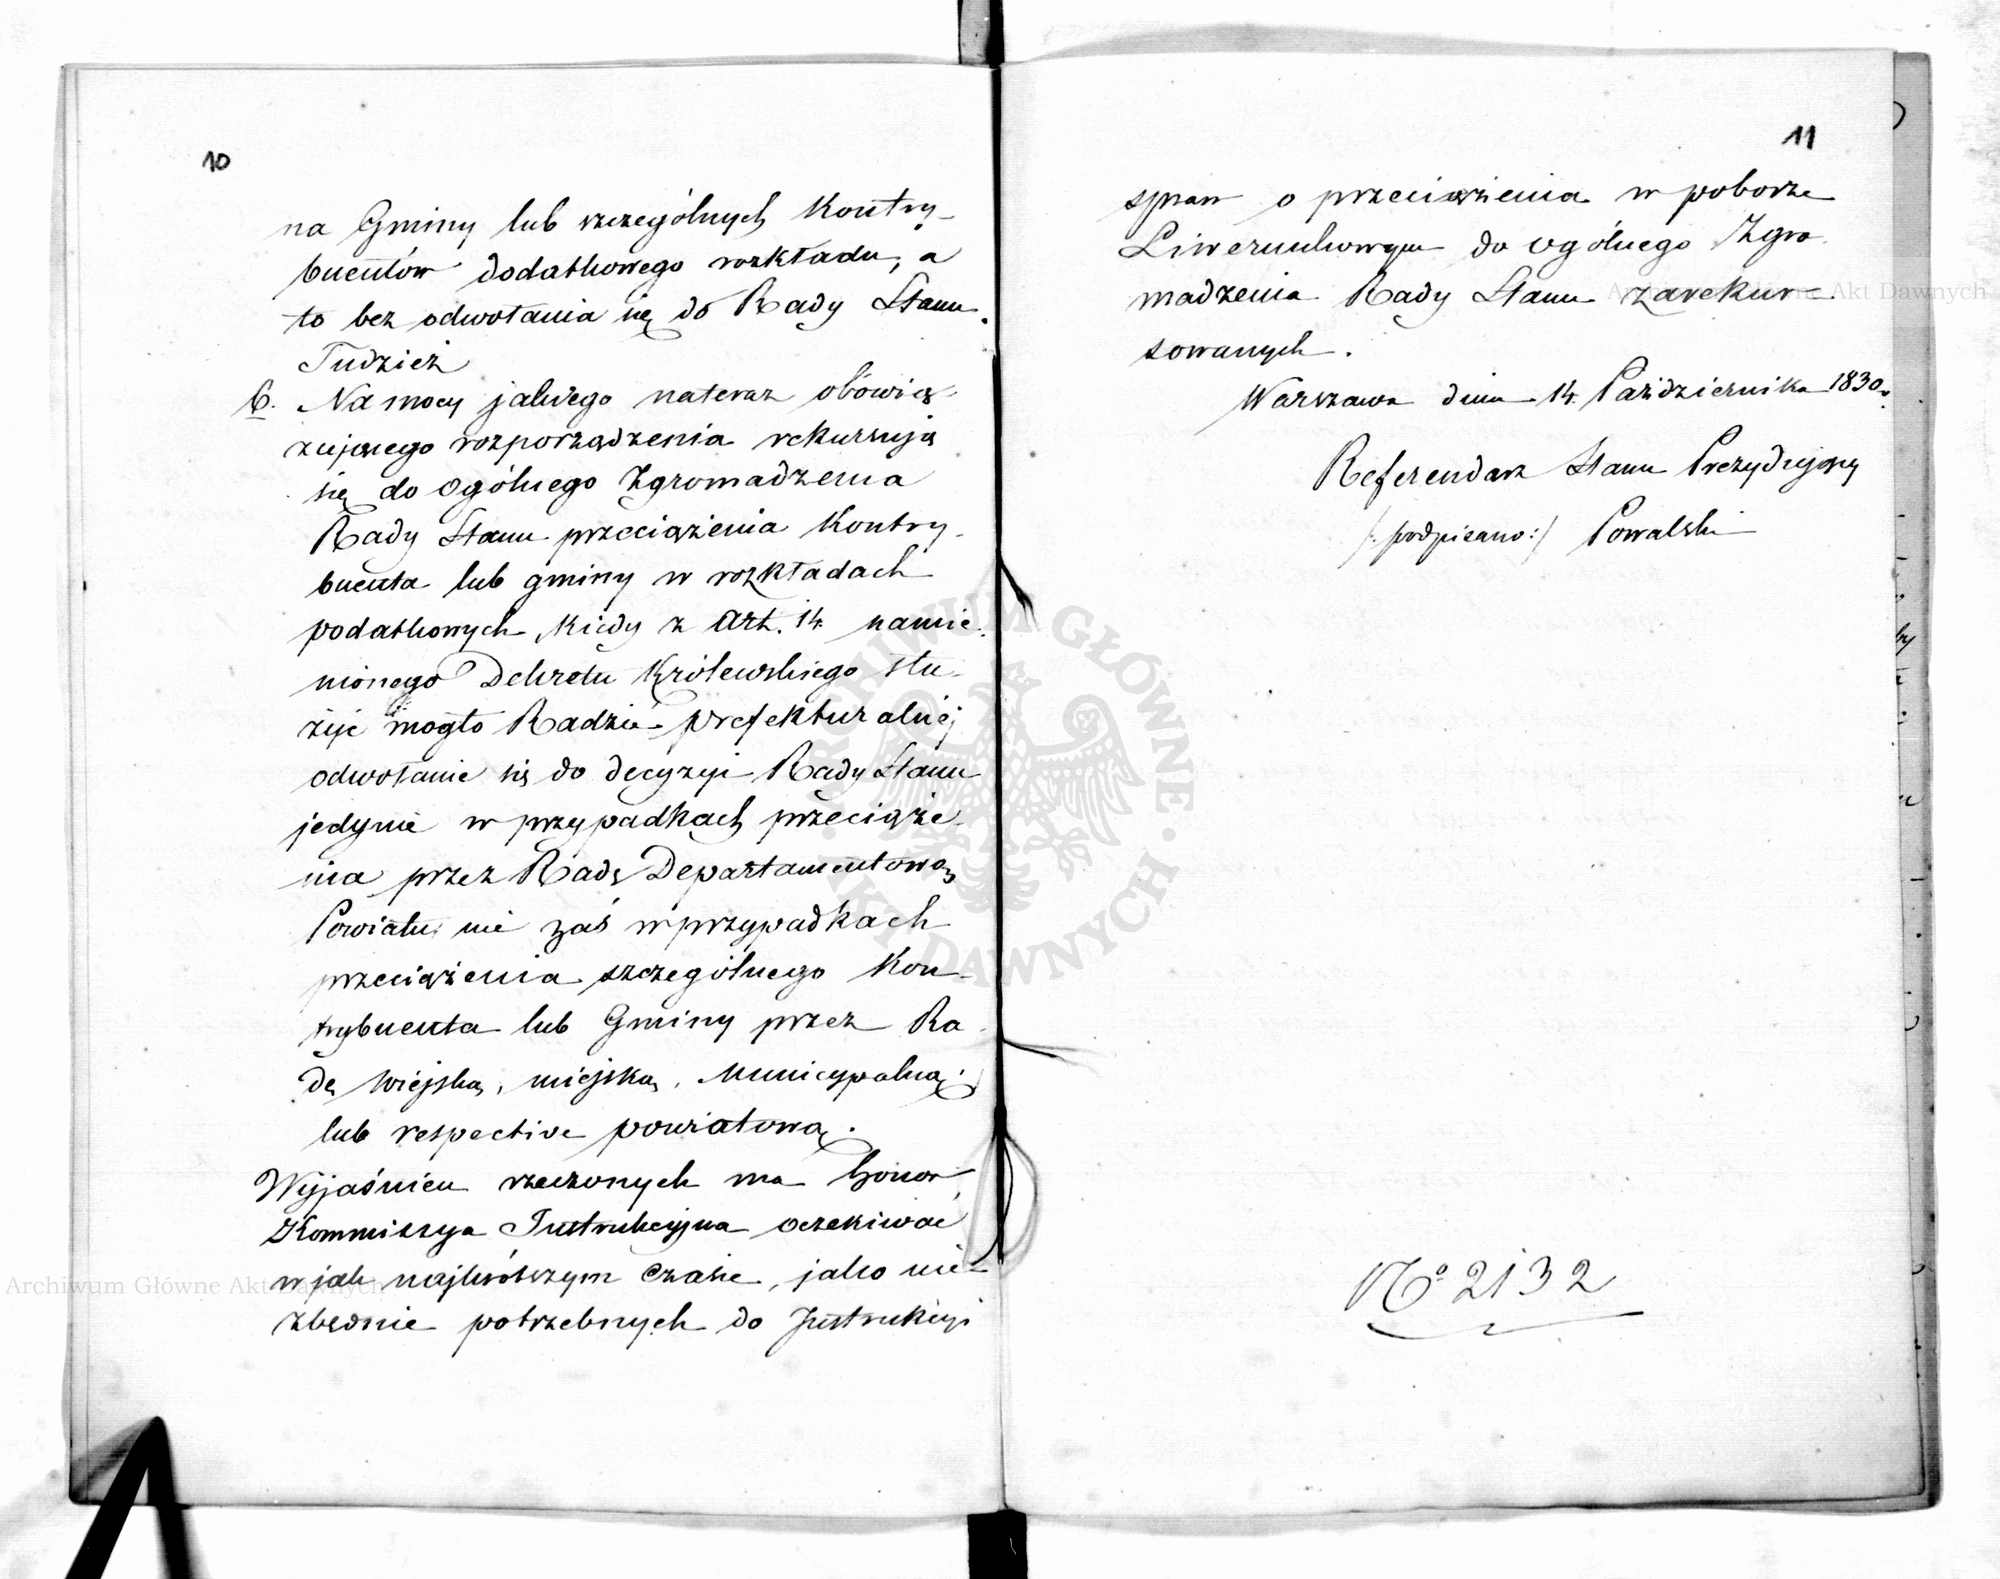 10
na Gminy lub szczególnych Kontry-
buentów dodatkowego rozkładu, a
to bez odwołania się do Rady Stanu.
Tudzież
6. Na mocy jakiego nateraz obowią-
zującego rozporządzenia rekursują
się do ogólnego Zgromadzenia
Rady Stanu przeciążenia Kontry-
buenta lub gminy w rozkładach
podatkowych, kiedy z Art. 14 namie-
nionego Dekretu Królewskiego słu-
żyć mogło Radzie prefekturalnej
odwołanie się do decyzyi Rady Stanu
jedynie w przypadkach przeciąże-
nia przez Radę Departamentową
Powiatu nie zaś w przypadkach
przeciążenia szczególnego Kon-
trybuenta lub Gminy przez Ra-
dę wiejską, miejską, Municypalną
lub respective powiatową.
Wyjaśnień rzeczonych ma honor
Kommissya Instrukcyjna oczekiwać
w jak najkrótszym czasie, jako nie-
zbędnie potrzebnych do Instrukcyi
11
spraw o przeciążenia w poborze
Liwerunkowym do ogólnego Zgro-
madzenia Rady Stanu zarekur-
sowanych.
Warszawa dnia 14 Października 1830.
Referendarz Stanu Prezydujący
/: podpisano :/ Powalski
No 2132
Archiwum Główne Akt Dawnych
ARCHIWUM GŁÓWNE AKT DAWNYCH
Archiwum Główne Akt Dawnych